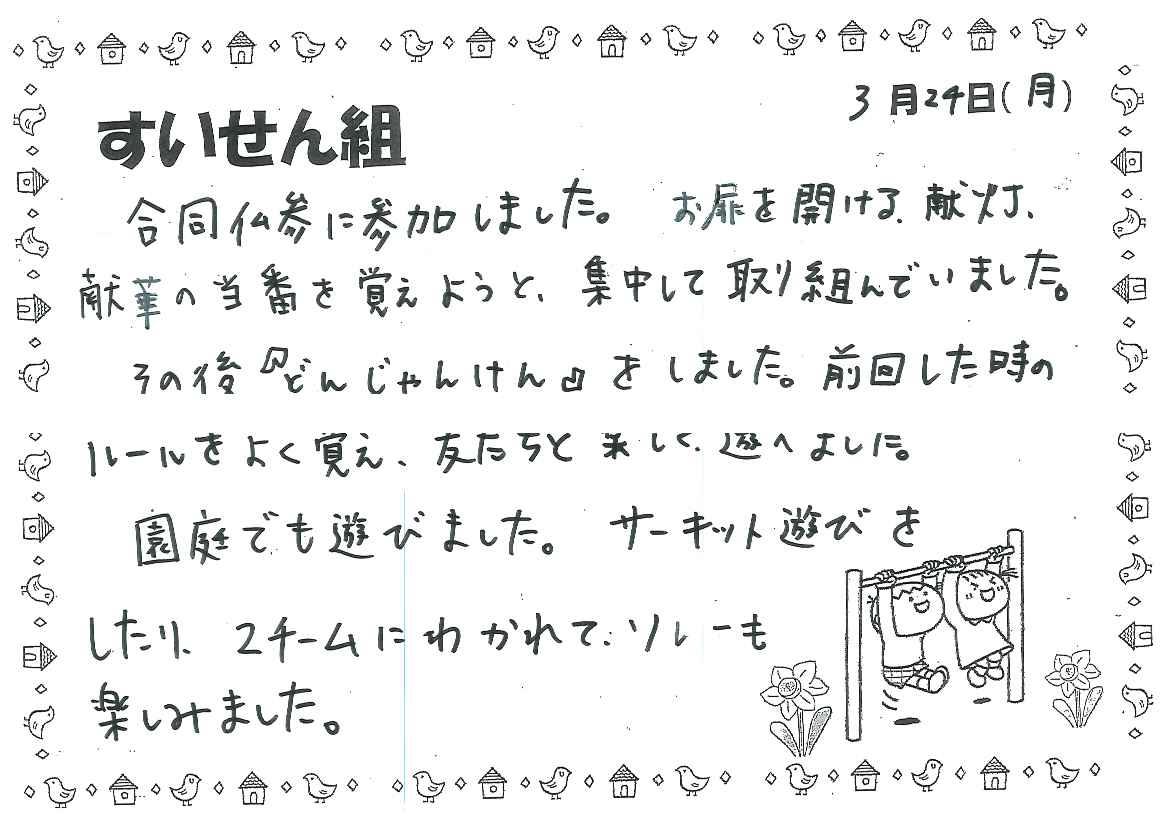 3月24日(月)
すいせん組
合同仏参に参加しました。 お扉を開ける、献灯、
献華の当番を覚えようと、集中して取り組んでいました。
その後『どんじゃんけん』をしました。前回した時の
ルールをよく覚え、友だちと楽しく遊べました。
園庭でも遊びました。 サーキット遊びを
したり、2チームにわかれて、リレーも
楽しみました。